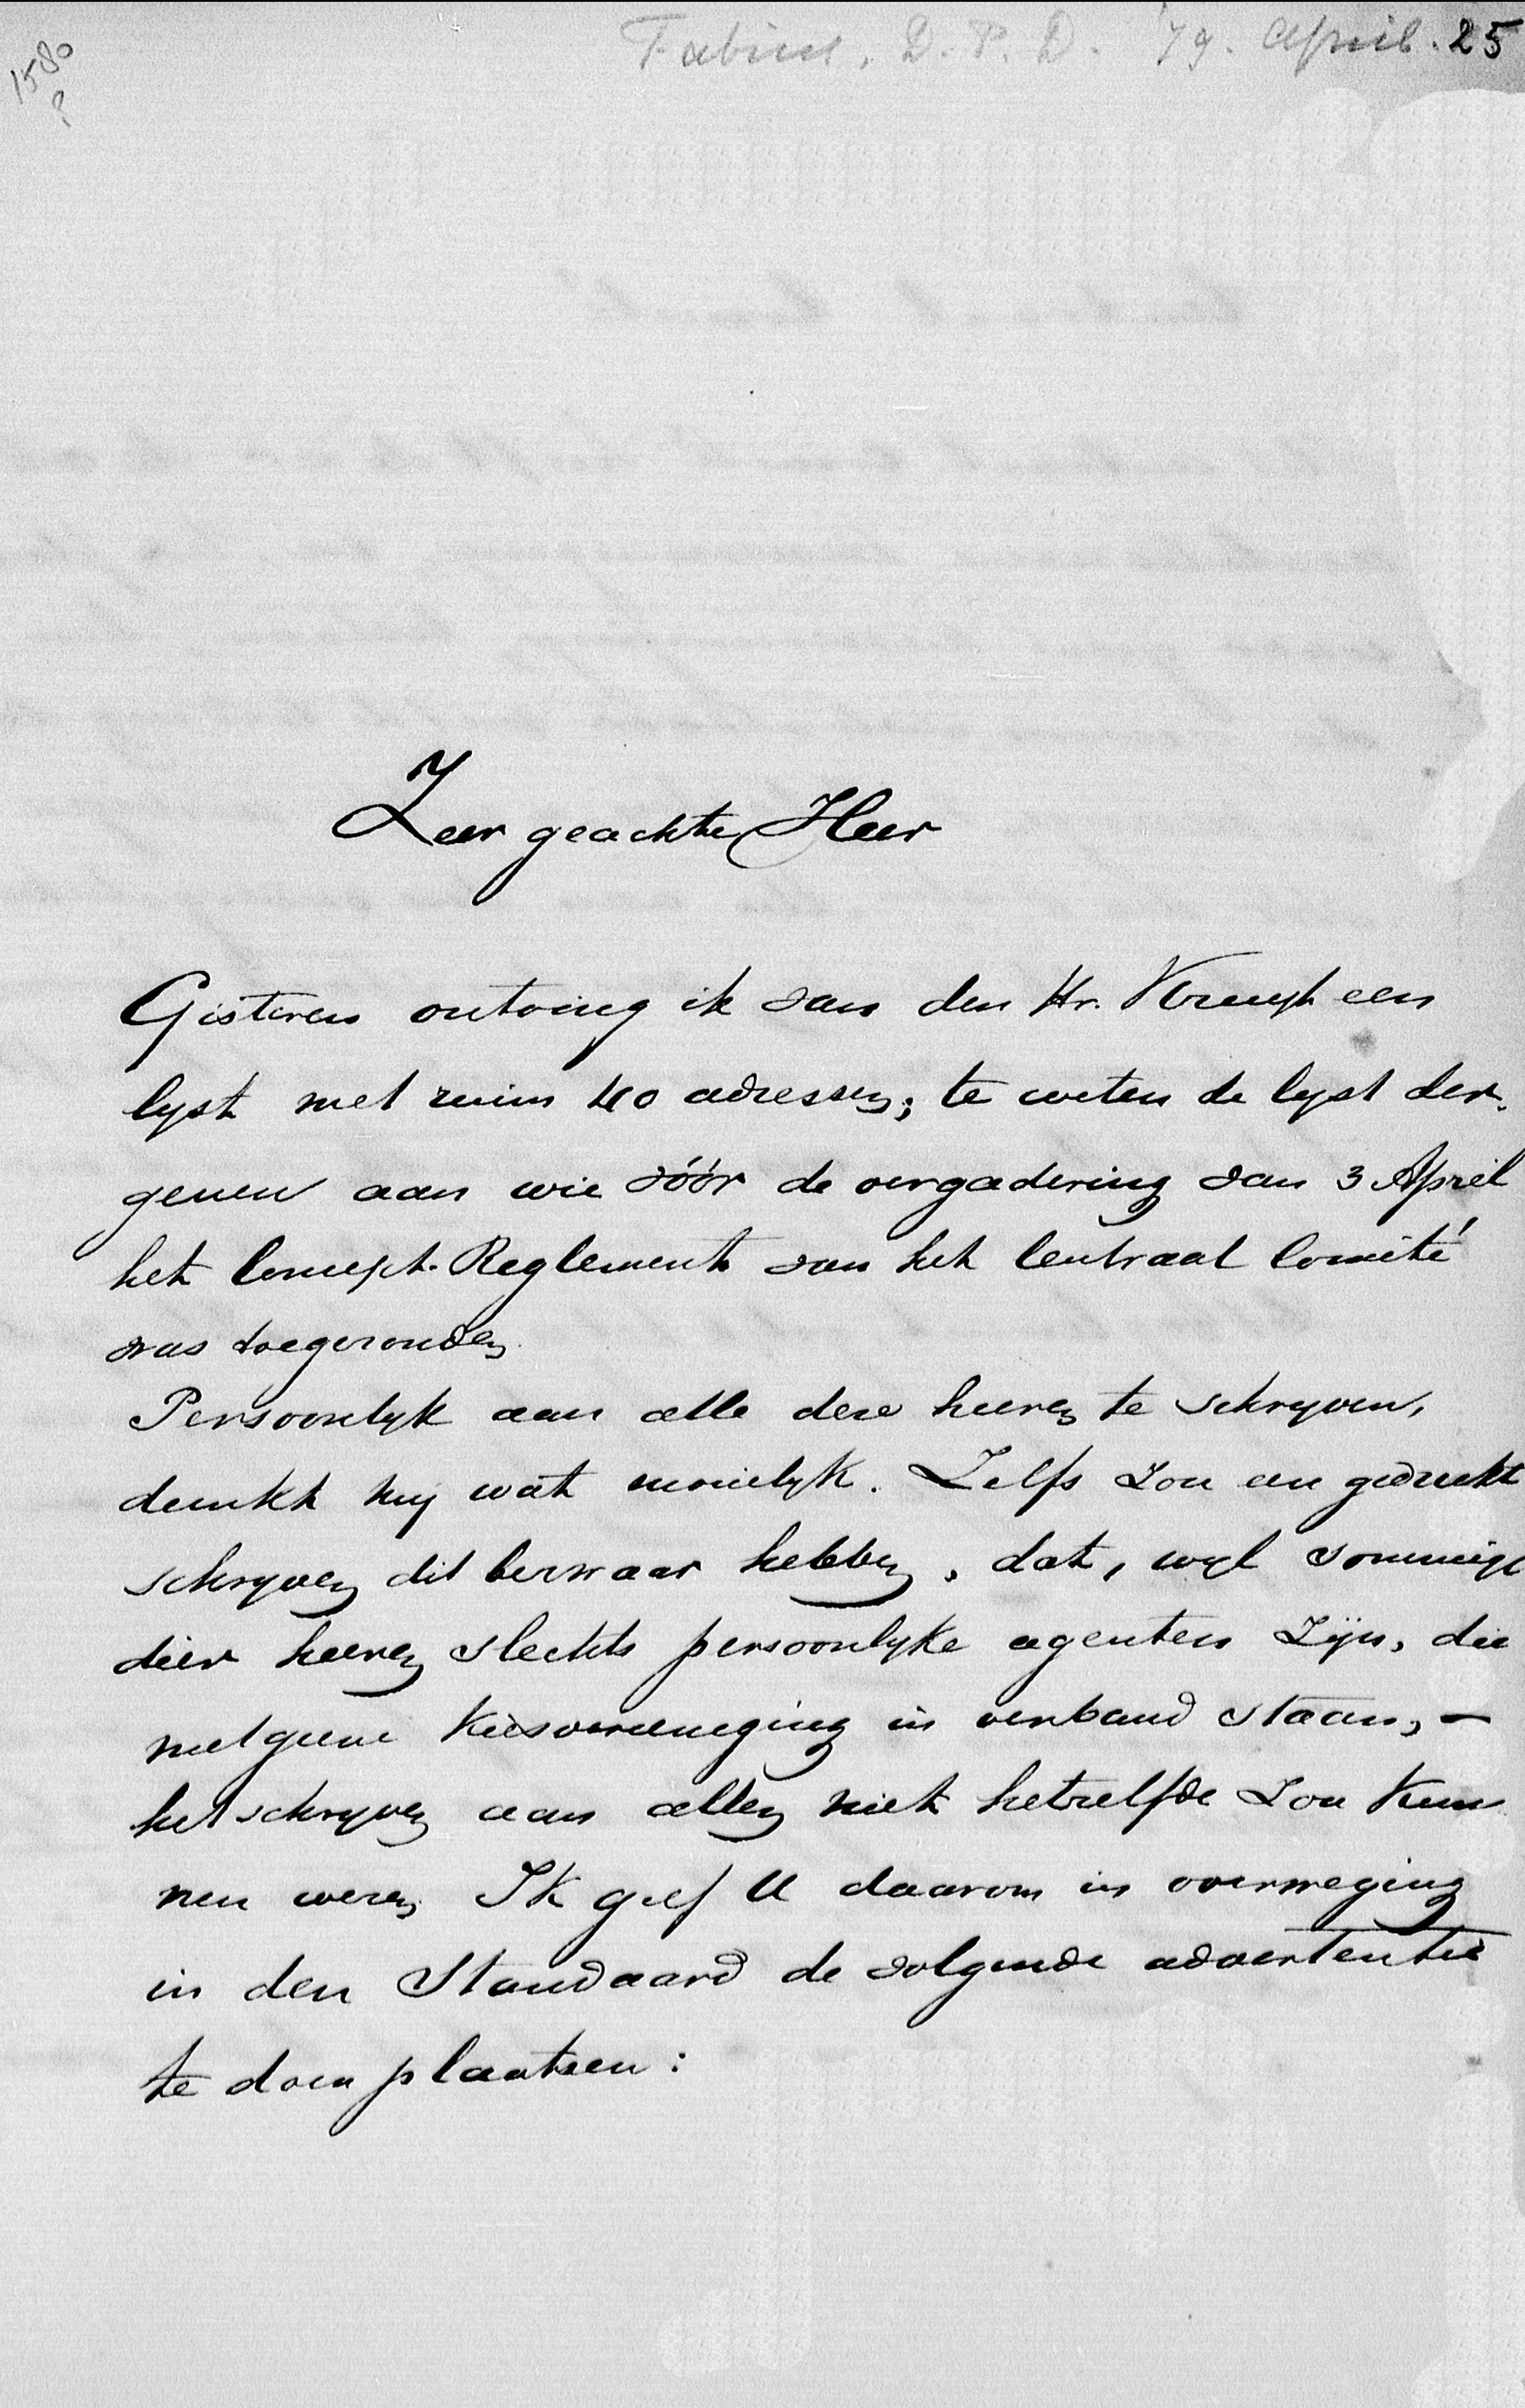 Fabius. D.P.D. '79. April. 25
1580
?
Zeer geachte Heer
Gisteren ontving ik van den Hr. Kruyt een
lyst met ruim 40 adressen; te weten de lyst der-
genen aan wie vóór de vergadering van 3 April
het Concept-Reglement van het Centraal Comité
was toegezonden.
Persoonlyk aan alle deze heeren te schryven,
dunkt my wat moeielyk. Zelfs zou een gedrukt
schryven dit bezwaar hebben, dat, wyl sommige
dier heeren slechts persoonlyke agenten zijn, die
met geene Kiesvereeniging in verband staan, -
het schryven aan allen niet hetzelfde zou Kun
nen wezen. Ik geef U daarom in overweging
in den Standaard de volgende advertentie
te doen plaatsen: